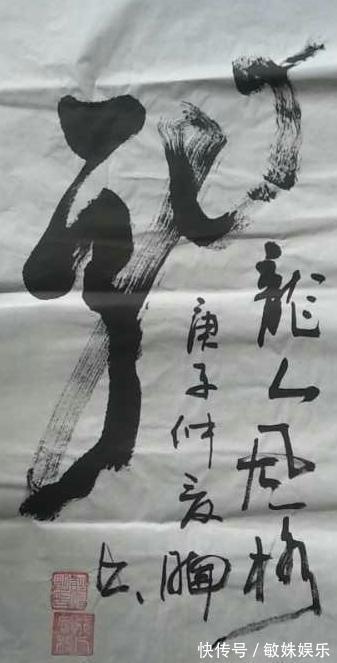 龍
龍人风格
庚子仲夏
书
快传号／敏姝娱乐